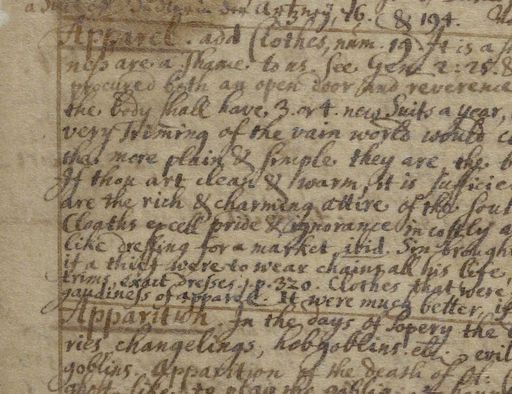 & 194.
Apparel. add Clothes, num. 19. It is a
ness are a shame to us. See Gen. 2:25. &
procured both an open door and reverence
the body shall have, 3. or 4. new Suits a year,
very triming of the vain world would
the more plain & simple they are the
If thou art clean & warm, it is sufficie
are the rich & charming attire of the
Cloaths excell pride & ignorance in costly
like dressing for a market, ibid. Sin brought
if a thief were to wear chains all his life,
trims, exact dresses, p. 320. Clothes that were
gaudiness of apparel. It were much better, if
Apparition. In the days of Popery the
ries, changelings, hobgoblins, etc. evil
goblins. Apparition of the death of